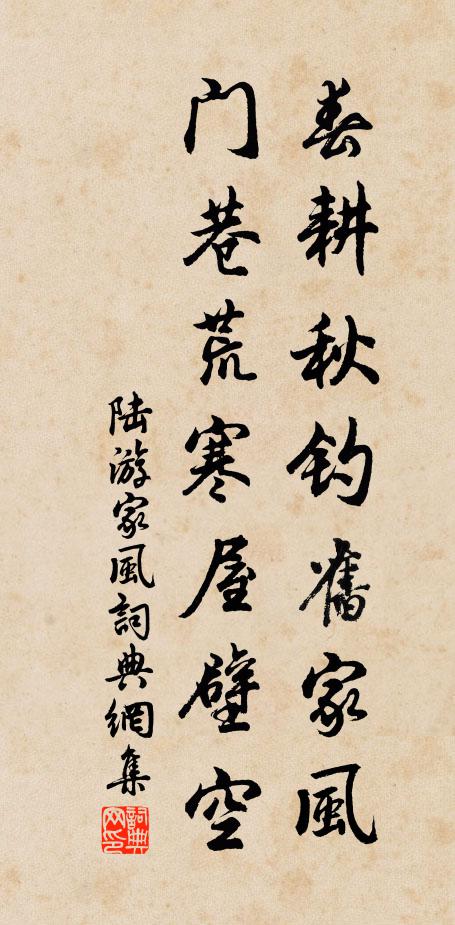 春耕秋钓舊家風
門巷荒寒屋壁空
陆游家風詞典網集
詞典网印